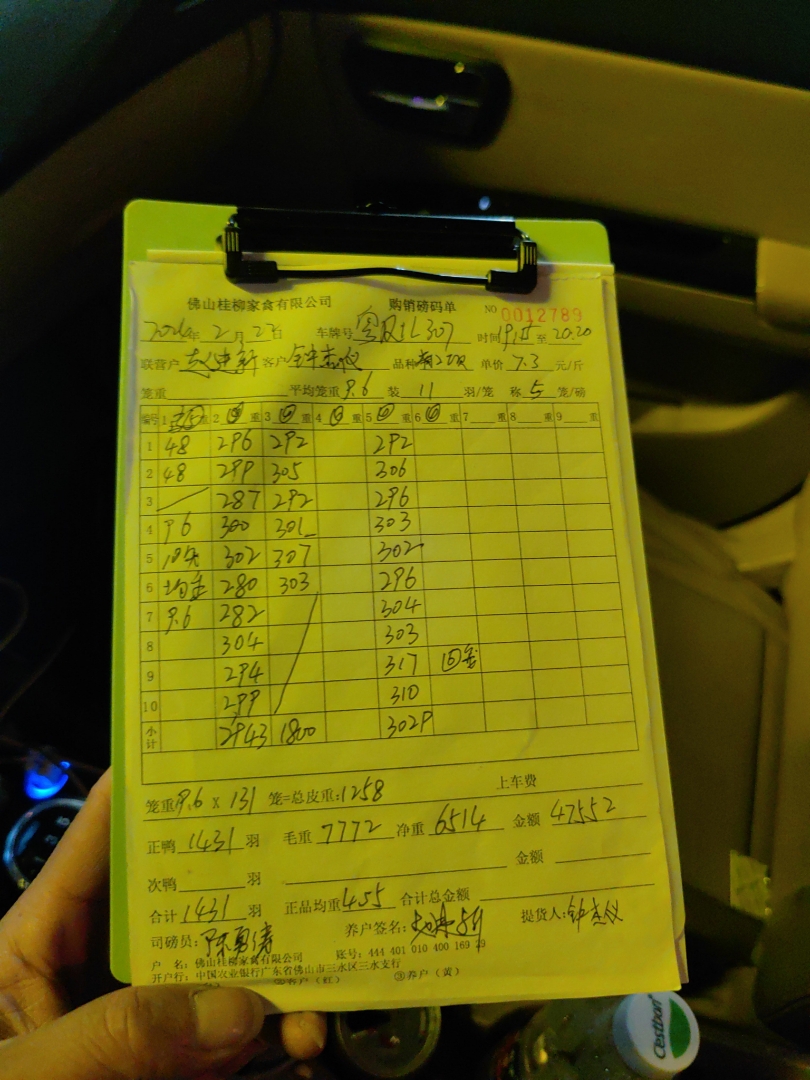 佛山桂柳家禽有限公司 购销磅码单 NO 0012789
2026年 2月 27日 车牌号 粤R1L307 时间 19:15 至 20:20
联营户 客户 钟杰仪 品种 单价 7.3 元/斤
笼重 平均笼重 9.6 装 11 羽/笼 称 5 笼/磅
编号 1 重 2 重 3 重 4 重 5 重 6 重 7 重 8 重 9 重
1 48 296 292 292
2 48 299 305 306
3 287 292 296
4 96 300 301 303
5 10只 302 307 302
6 均重 280 303 296
7 9.6 282 304
8 304 303
9 294 317
10 299 310
小计 2943 1800 3029
笼重 9.6 x 131 笼=总皮重:1258 上车费
正鸭 1431 羽 毛重 7772 净重 6514 金额 47552
次鸭 羽 金额
合计 1431 羽 正品均重 4.55 合计总金额
司磅员: 养户签名: 提货人: 钟杰仪
户 名: 佛山桂柳家禽有限公司 账号: 444 401 010 400 169 29
开户行: 中国农业银行广东省佛山市三水区三水支行
②客户(红) ③养户(黄)
Cestbon